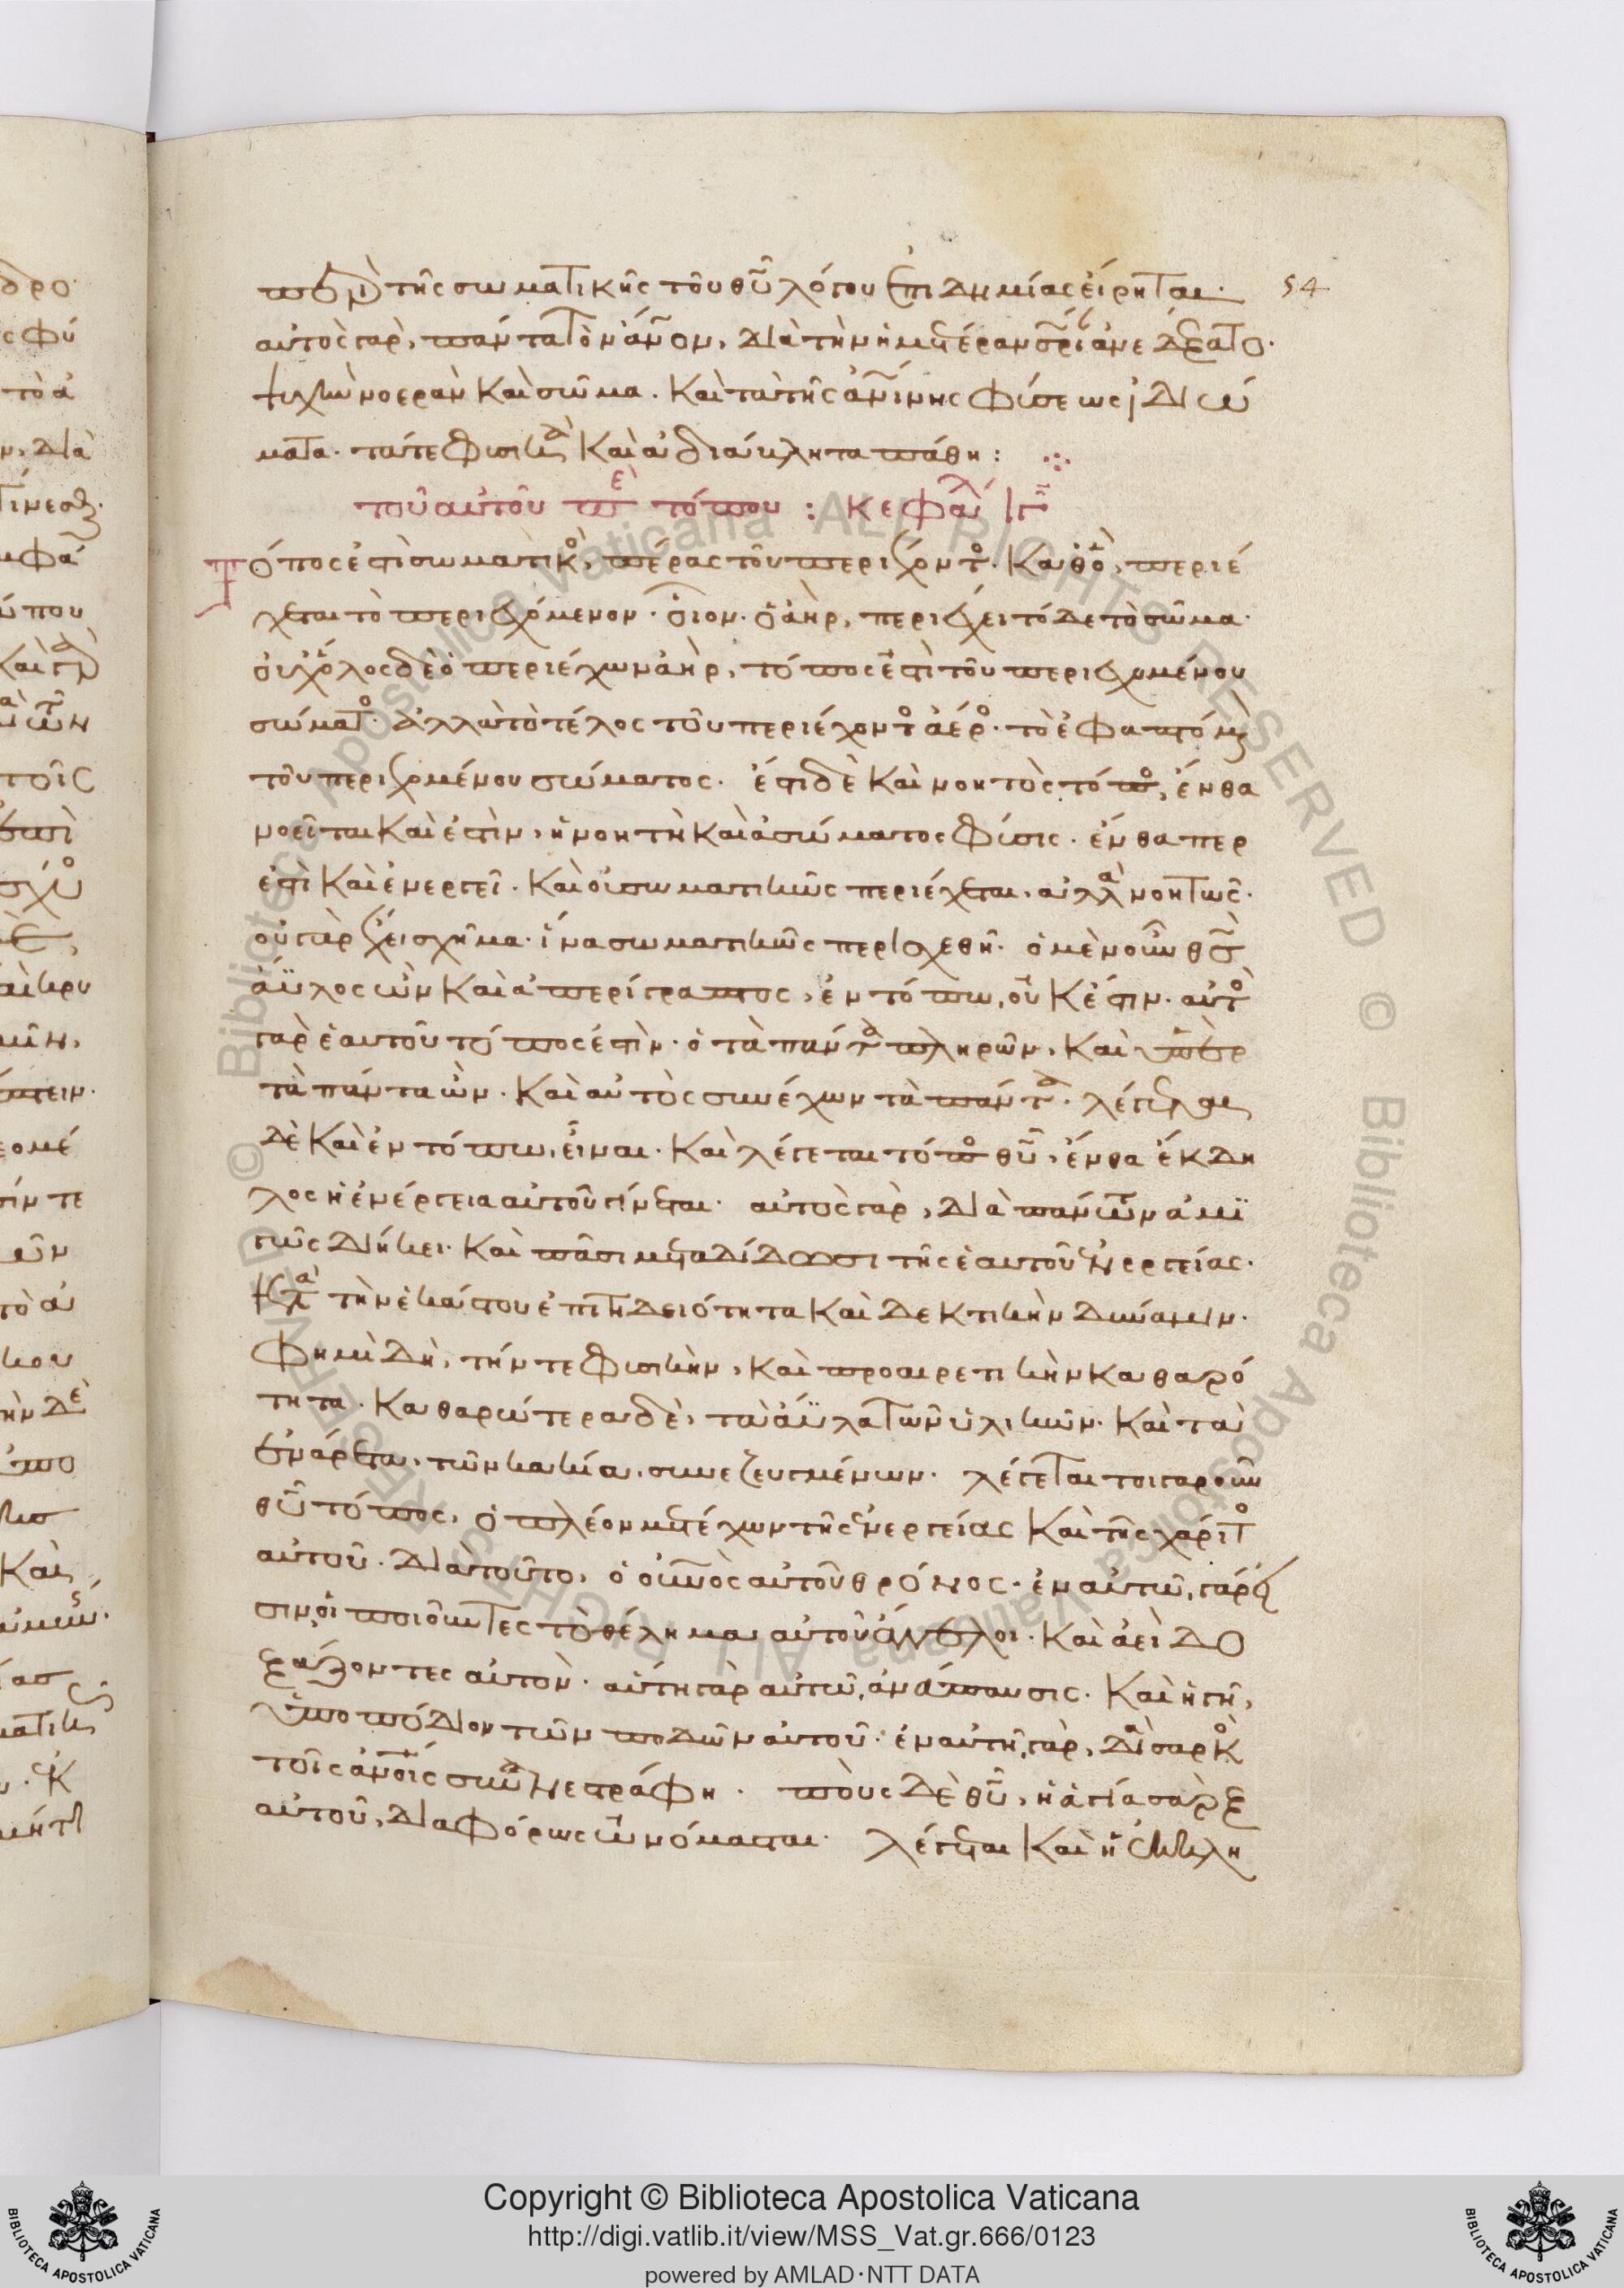 περὶ τῆς σωματικῆς τοῦ θῦ λόγου ἐπιδημίας εἴρηται· 54
αὐτὸς γὰρ, πάντα τὸν ἄνον, διὰ τὴν ἡμετέραν σρίαν ἀνεδέξατο·
ψυχὴν νοερὰν καὶ σῶμα. καὶ τὰ τῆς ἀνίνης φύσεως ἰδιώ
ματα. τά τε φυσικὰ καὶ ἀδιάβλητα πάθη:
τοῦ αὐτοῦ πε τόπου : κεφαλ ιγ
Τόπος ἐστὶ σωματικὸς, πέρας τοῦ περιέχοντος. καθὸ, περιέ
χεται τὸ περιεχόμενον. οἷον. ὁ ἀὴρ, περιέχει τόδε τὸ σῶμα.
οὐχ ὅλος δὲ ὁ περιέχων ἀὴρ, τόπος ἐστὶ τοῦ περιεχομένου
σώματος. ἀλλὰ τὸ τέλος τοῦ περιέχοντος ἀέρος. τὸ ἐφαπτόμενον
τοῦ περιεχομένου σώματος. ἔστι δὲ καὶ νοητὸς τόπος, ἔνθα
νοεῖται καὶ ἐστὶν, ἡ νοητὴ καὶ ἀσώματος φύσις. ἔνθα περ
ἐστὶ καὶ ἐνεργεῖ. καὶ οὐ σωματικῶς περιέχεται, ἀλλὰ νοητῶς.
οὐ γὰρ ἔχει σχῆμα. ἵνα σωματικῶς περισχεθῆ. ὁ μὲν οὖν θς
ἄϋλος ὢν καὶ ἀπερίγραπτος, ἐν τόπω, οὐκ ἔστιν. αὐτὸς
γὰρ ἑαυτοῦ τόπος ἐστὶν. ὁ τὰ πάντα πληρῶν, καὶ ὑπὲρ
τὰ πάντα ὢν. καὶ αὐτὸς συνέχων τὰ πάντα. λέγεται
δὲ καὶ ἐν τόπω, εἶναι. καὶ λέγεται τόπος θῦ, ἔνθα ἔκδη
λος ἡ ἐνέργεια αὐτοῦ γίνεται. αὐτὸς γὰρ, διὰ πάντων ἀμι
γῶς διήκει. καὶ πᾶσι μεταδίδωσι τῆς ἑαυτοῦ ἐνεργείας.
κατὰ τὴν ἑκάστου ἐπιτηδειότητα καὶ δεκτικὴν δύναμιν.
φημὶ δὴ, τήν τε φυσικὴν, καὶ προαιρετικὴν καθαρό
τητα. καθαρώτερα δὲ, τὰ ἄϋλα τῶν ὑλικῶν. καὶ τὰ
ἐνάρετα, τῶν κακία, συνεζευγμένων. λέγεται τοιγαροῦν
θῦ τόπος, ὁ πλέον μετέχων τῆς ἐνεργείας καὶ τῆς χάριτος
αὐτοῦ. διὰ τοῦτο, ὁ οὐνὸς αὐτοῦ θρόνος. ἐν αὐτῶ, γάρ εἰ
σιν, οἱ ποιοῦντες τὸ θέλημα αὐτοῦ ἄγγελοι. καὶ ἀεὶ δο
ξάζοντες αὐτὸν. αὕτη γὰρ αὐτῶ, ἀνάπαυσις. καὶ ἡ γῆ,
ὑποπόδιον τῶν ποδῶν αὐτοῦ. ἐν αὐτῆ, γὰρ, διὰ σαρκὸς
τοῖς ἀνοις συνανεστράφη. ποὺς δὲ θῦ, ἡ ἁγία σὰρξ
αὐτοῦ, διαφόρως ὠνόμασται. λέγεται καὶ ἡ ἐκκλη
Copyright © Biblioteca Apostolica Vaticana
http://digi.vatlib.it/view/MSS_Vat.gr.666/0123
powered by AMLAD·NTT DATA